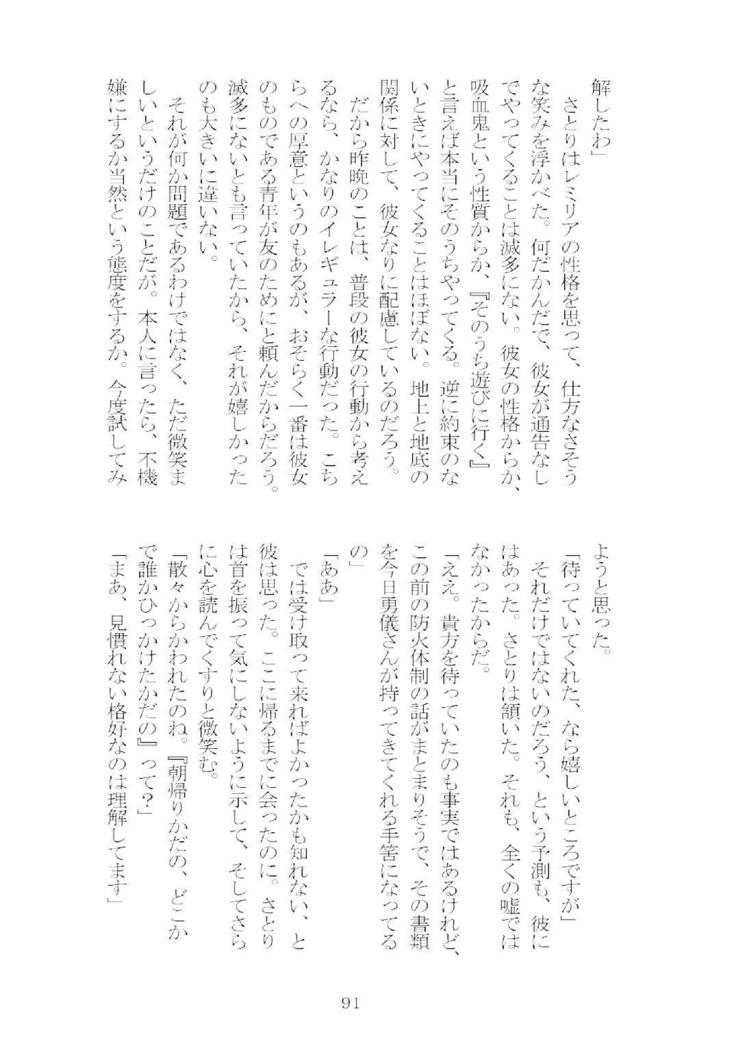 解したわ」
　さとりはレミリアの性格を思って、仕方なさそう
な笑みを浮かべた。何だかんだで、彼女が通告なし
でやってくることは滅多にない。彼女の性格からか、
吸血鬼という性質からか、『そのうち遊びに行く』
と言えば本当にそのうちやってくる。逆に約束のな
いときにやってくることはほぼない。地上と地底の
関係に対して、彼女なりに配慮しているのだろう。
　だから昨晩のことは、普段の彼女の行動から考え
るなら、かなりのイレギュラーな行動だった。こち
らへの厚意というのもあるが、おそらく一番は彼女
のものである青年が友のためにと頼んだからだろう。
滅多にないとも言っていたから、それが嬉しかった
のも大きいに違いない。
　それが何か問題であるわけではなく、ただ微笑ま
しいというだけのことだが。本人に言ったら、不機
嫌にするか当然という態度をするか。今度試してみ
ようと思った。
「待っていてくれた、なら嬉しいところですが」
　それだけではないのだろう、という予測も、彼に
はあった。さとりは頷いた。それも、全くの嘘では
なかったからだ。
「ええ。貴方を待っていたのも事実ではあるけれど、
この前の防火体制の話がまとまりそうで、その書類
を今日勇儀さんが持ってきてくれる手筈になってる
の」
「ああ」
　では受け取って来ればよかったかも知れない、と
彼は思った。ここに帰るまでに会ったのに。さとり
は首を振って気にしないように示して、そしてさら
に心を読んでくすりと微笑む。
「散々からかわれたのね。『朝帰りかだの、どこか
で誰かひっかけたかだの』って？」
「まあ、見慣れない格好なのは理解してます」
91